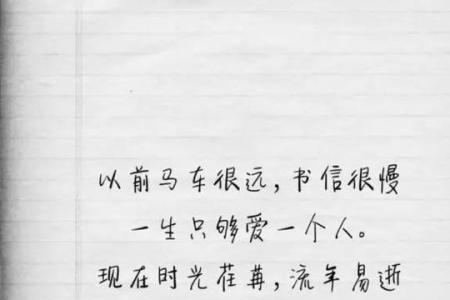 以前马车很远,书信很慢
一生只够爱一个人。
现在时光荏苒,流年易逝